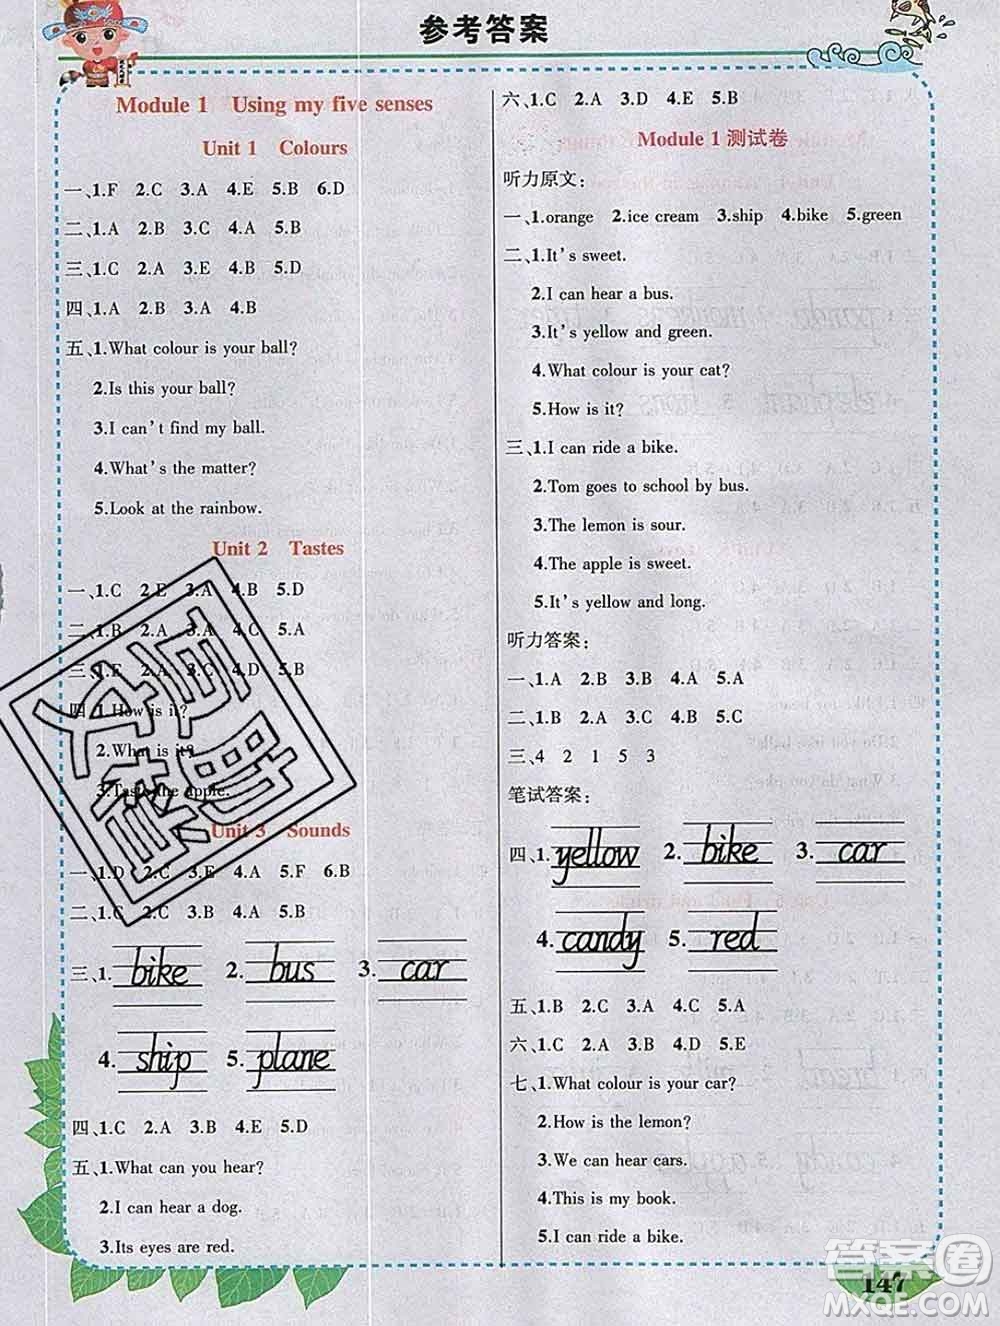 参考答案
Module 1 Using my five senses
Unit 1 Colours
一、1.F 2.C 3.A 4.E 5.B 6.D
二、1.A 2.B 3.C 4.A 5.B
三、1.C 2.A 3.E 4.B 5.D
四、1.A 2.B 3.A 4.B
五、1.What colour is your ball?
2.Is this your ball?
3.I can't find my ball.
4.What's the matter?
5.Look at the rainbow.
Unit 2 Tastes
一、1.C 2.E 3.A 4.B 5.D
二、1.B 2.A 3.A 4.C 5.A
三、1.E 2.A 3.C 4.B 5.D
四、1.How is it?
2.What is it?
3.Taste the apple.
Unit 3 Sounds
一、1.D 2.C 3.E 4.A 5.F 6.B
二、1.C 2.C 3.B 4.A 5.B
三、1. bike 2. bus 3. car
4. ship 5. plane
四、1.C 2.A 3.B 4.E 5.D
五、1.What can you hear?
2.I can hear a dog.
3.Its eyes are red.
六、1.C 2.A 3.D 4.E 5.B
Module 1 测试卷
听力原文：
一、1.orange 2.ice cream 3.ship 4.bike 5.green
二、1.It's sweet.
2.I can hear a bus.
3.It's yellow and green.
4.What colour is your cat?
5.How is it?
三、1.I can ride a bike.
2.Tom goes to school by bus.
3.The lemon is sour.
4.The apple is sweet.
5.It's yellow and long.
听力答案：
一、1.A 2.B 3.B 4.A 5.A
二、1.B 2.A 3.A 4.B 5.C
三、4 2 1 5 3
笔试答案：
四、1. yellow 2. bike 3. car
4. candy 5. red
五、1.B 2.C 3.A 4.C 5.A
六、1.C 2.A 3.B 4.D 5.E
七、1.What colour is your car?
2.How is the lemon?
3.We can hear cars.
4.This is my book.
5.I can ride a bike.
147
答案圈
MXQE.COM